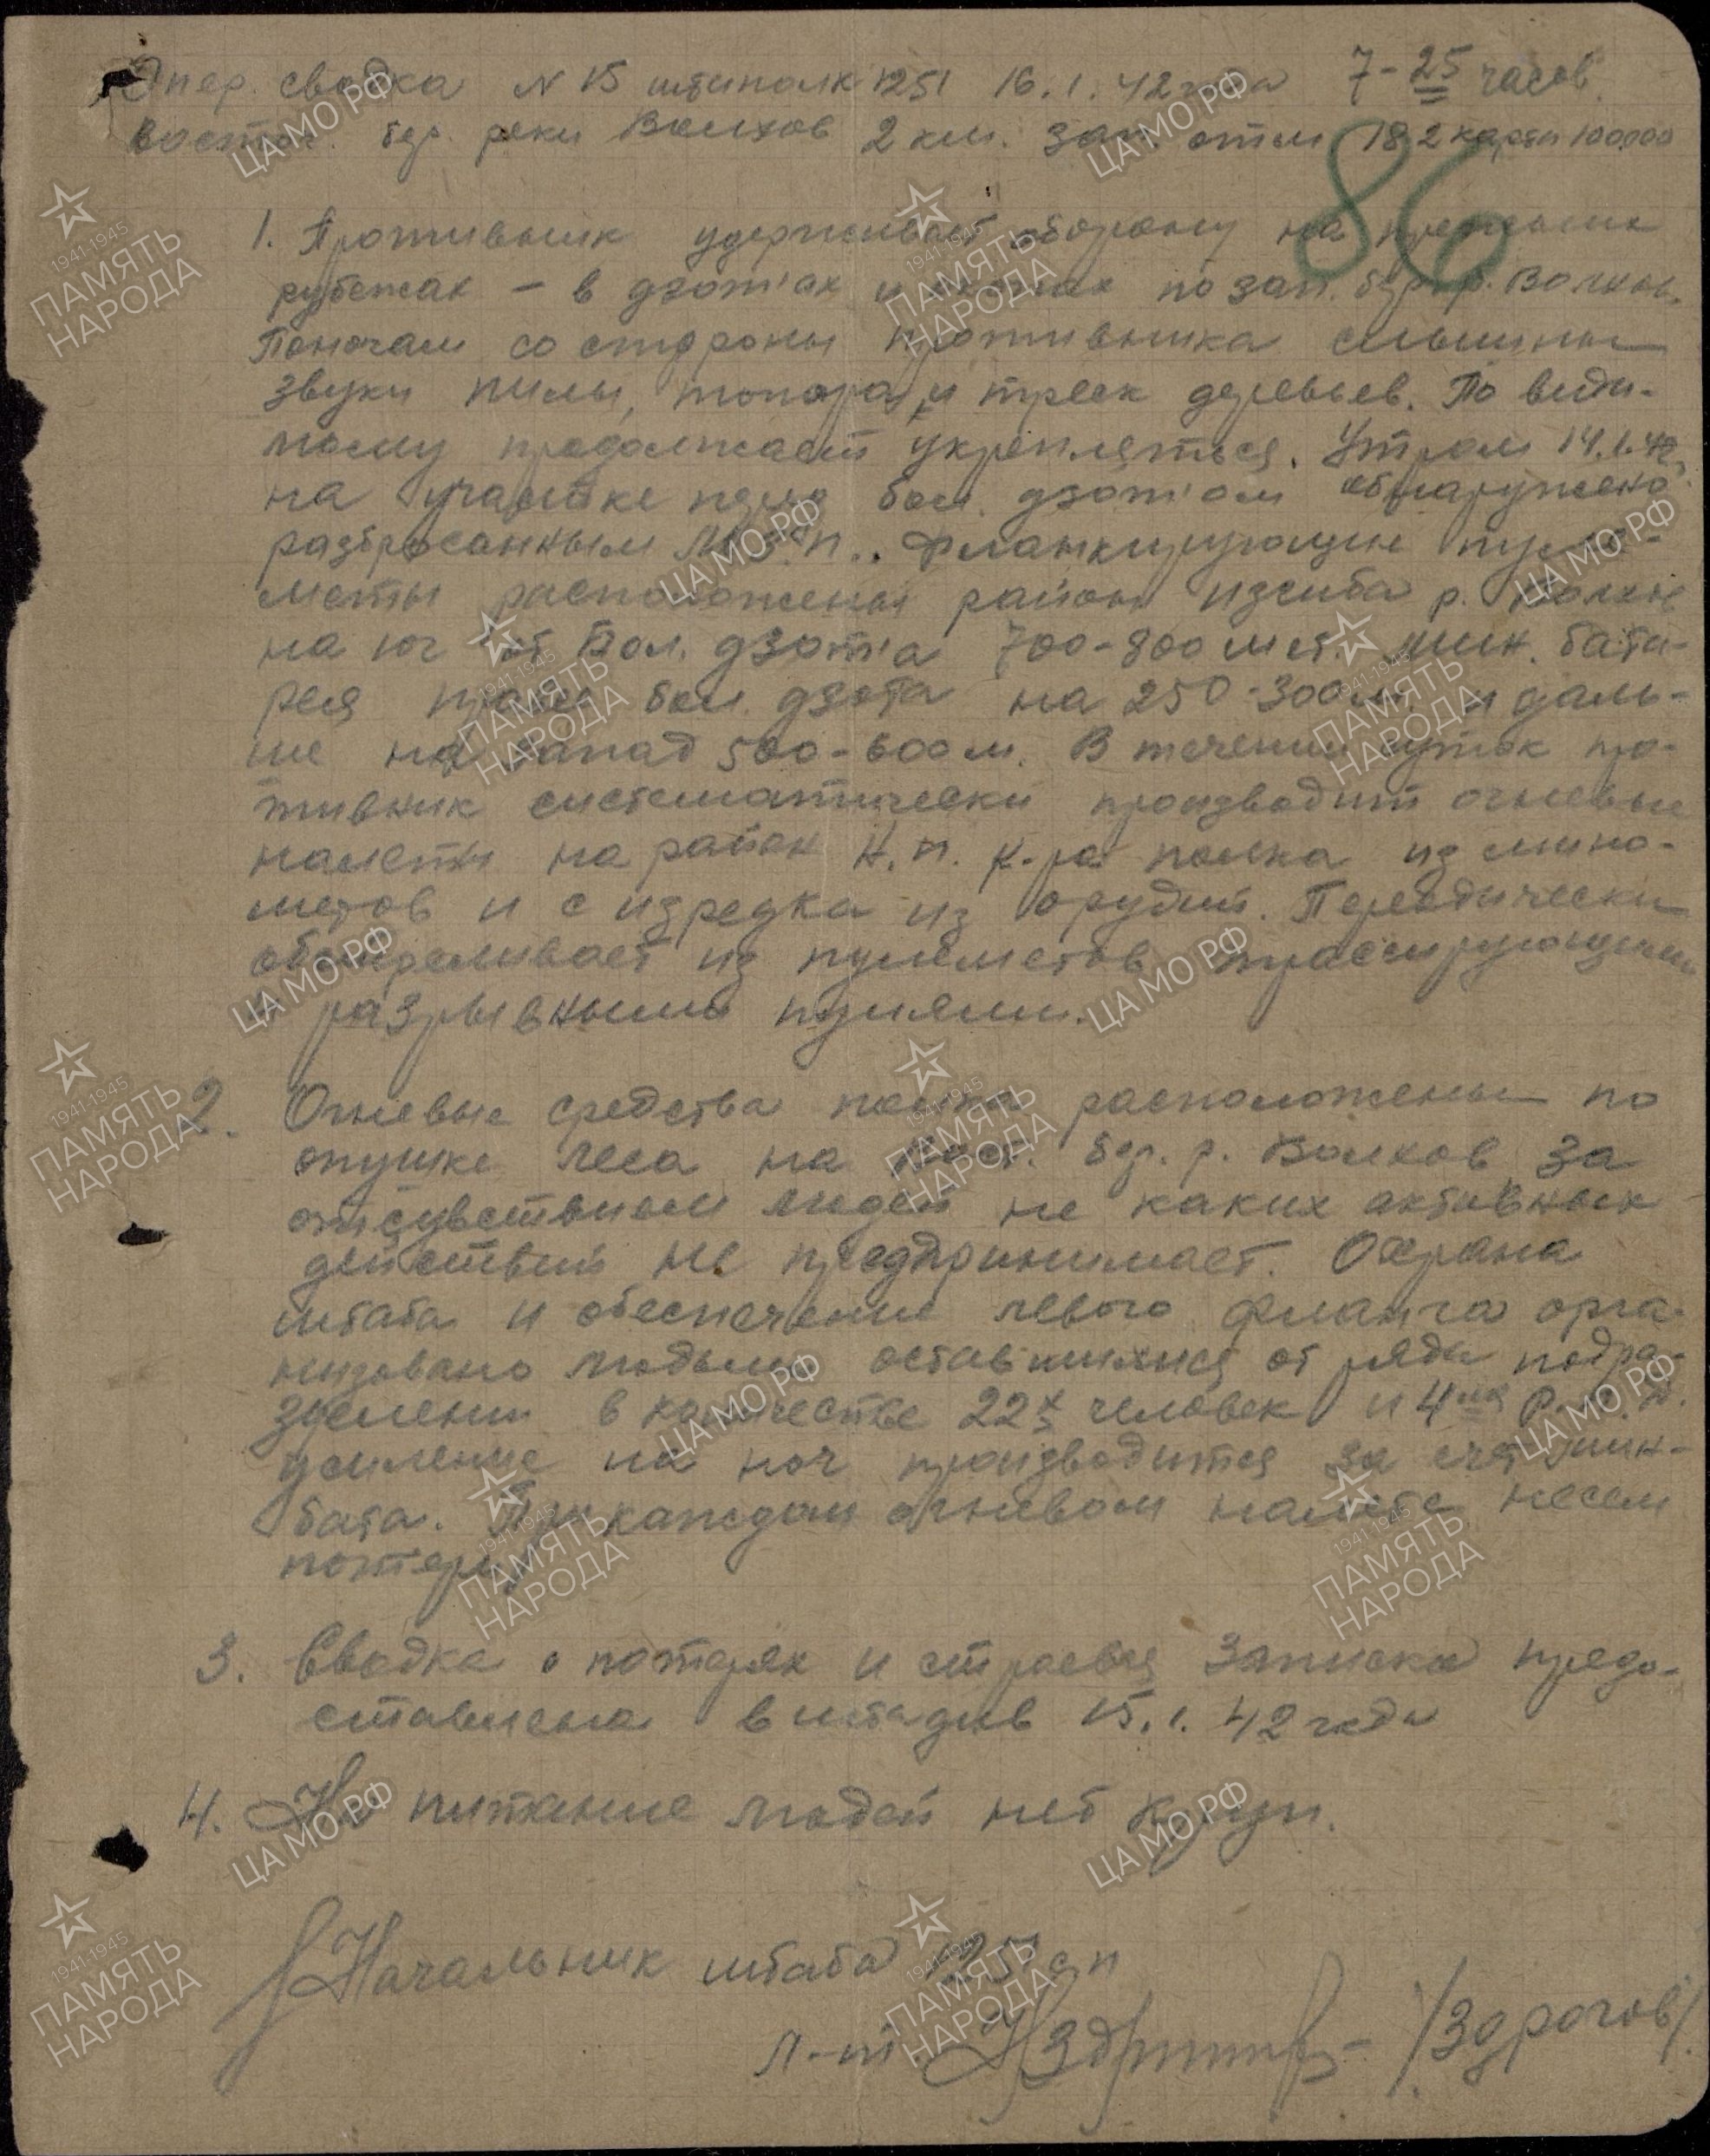 Опер. сводка N 15 штаполк 1251 16.1.42 года 7-25 часов.
восточ. бер. реки Волхов 2 км. зап. отм 18.2 карта 100000
86
1. Противник удерживает оборону на прежних
рубежах – в дзотах и окопах по зап. бер. р. Волхов.
Поночам со стороны противника слышны
звуки пилы, топора, и треск деревьев. По види-
мому продолжает укрепляться. Утром 14.1.42г.
на участке перед бол. дзотом обнаружено
разбросанным . Фланкирующие пуле-
меты расположены район изгиба р. Волхов
на юг от Бол. дзота 700-800 мет. мин. бата-
рея правее бол. дзота на 250-300 м. и даль-
ше на запад 500-600 м. В течении суток про-
тивник систематически производит огневые
налеты на район К.п. к-ра полка из мино-
метов и с изредка из орудий. Периодически
обстреливает из пулеметов трассирующими
и разрывными пулями.
2. Огневые средства полка расположены по
опушке леса на вост. бер. р. Волхов за
отсувствием людей не каких активных
действий не предпринимает. Охрана
штаба и обеспечение левого фланга орга-
низовано людьми оставшимися от ряда подра-
зделени в количестве 22х человек и 4мя
усиление на ноч производится за счет мин-
бата. При каждом огневом налете несем
потери.
3. Сводка о потерях и строевая записка предо-
ставлена в штадив 15.1.42 года
4. На питание людей нет круп.
Начальник штаба 1251 сп
л-т /Здрогов/
ЦА МО РФ
1941-1945
ПАМЯТЬ
НАРОДА